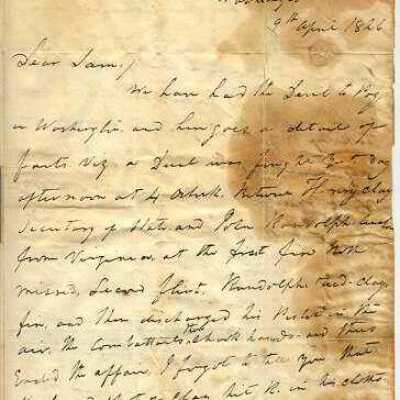 9th April 1826
Dear Sam,
We have had the Devil to Pay
in Washington and here goes a detail of
facts Viz. a Duel was fought
afternoon at 4 Oclock. Between Henry Clay
Secretary of State and John Randolph
from Virginia, at the first fire both
missed, Second fire. Randolph Clays
fire, and then discharged his Pistol in the
air. The Combattants then shook hands and thus
Ended the affair, I forgot to tell you that
hit R. in his clothes